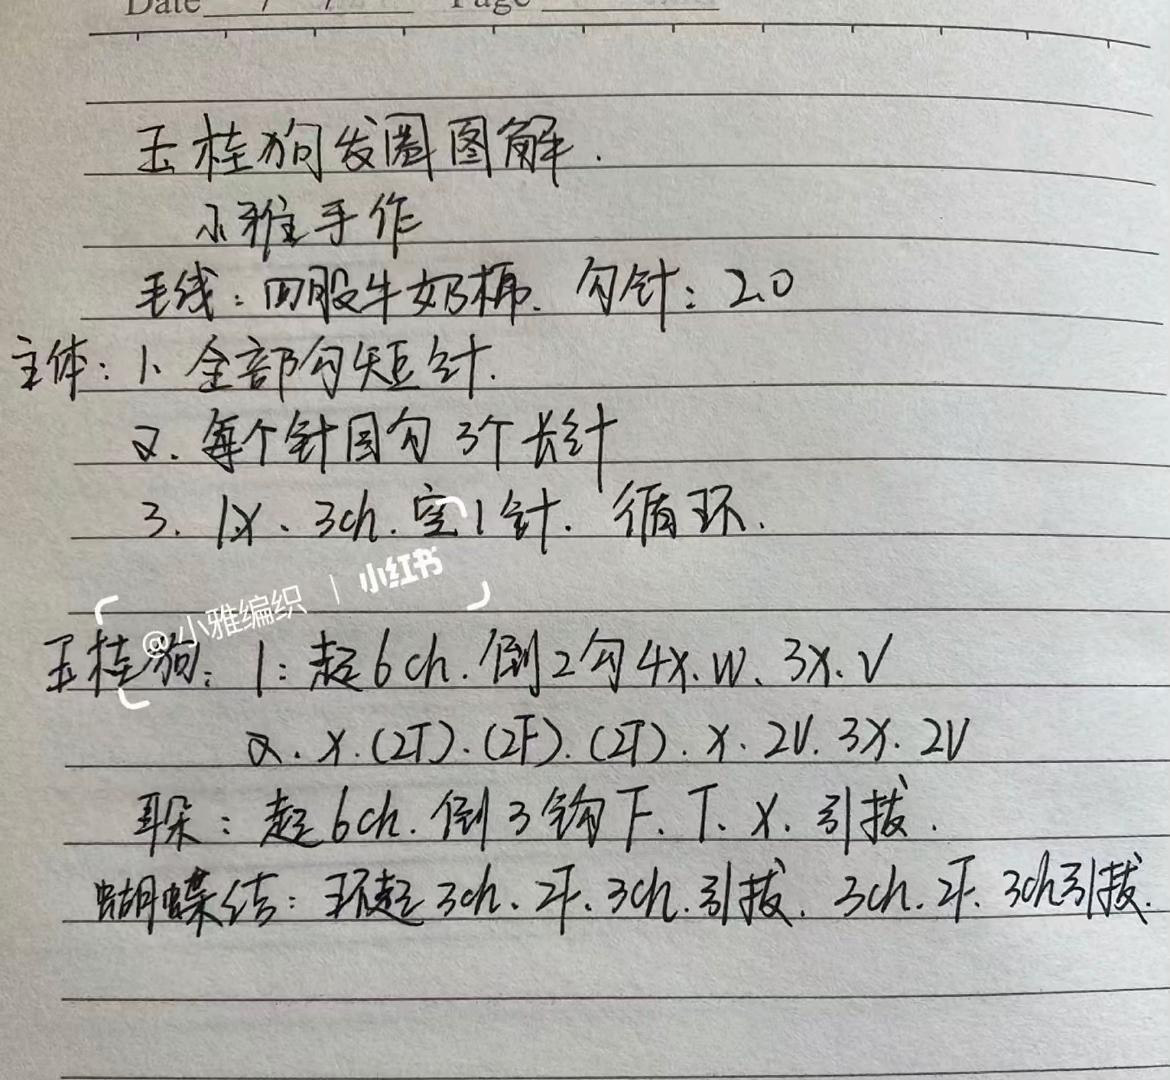 Date / / Page
玉桂狗发圈图解.
小雅手作
毛线：四股牛奶棉. 勾针：2.0
主体：1、全部勾短针.
2. 每个针目勾 3个长针
3. 1X、3ch. 空1针. 循环.
@小雅编织 | 小红书
玉桂狗：1：起6ch. 倒2勾4X. W、3X. V
2. X. (2T). (2F). (2T). X. 2V. 3X. 2V
耳朵：起6ch. 倒3钩F. T. X. 引拔.
蝴蝶结：环起3ch. 2F. 3ch. 引拔. 3ch. 2F. 3ch引拔.